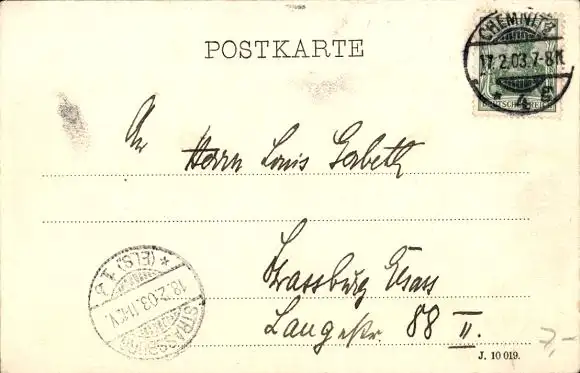 POSTKARTE
CHEMNITZ
17.2.03.7-8N.
* 4 g
DEUTSCHES REICH
An Herrn Louis Gerbeth
Strassburg Elsass
Langestr. 88 II.
STRASSBURG
18.2.03.11-12V.
* (ELS) 1 c
J. 10 019.
7,-